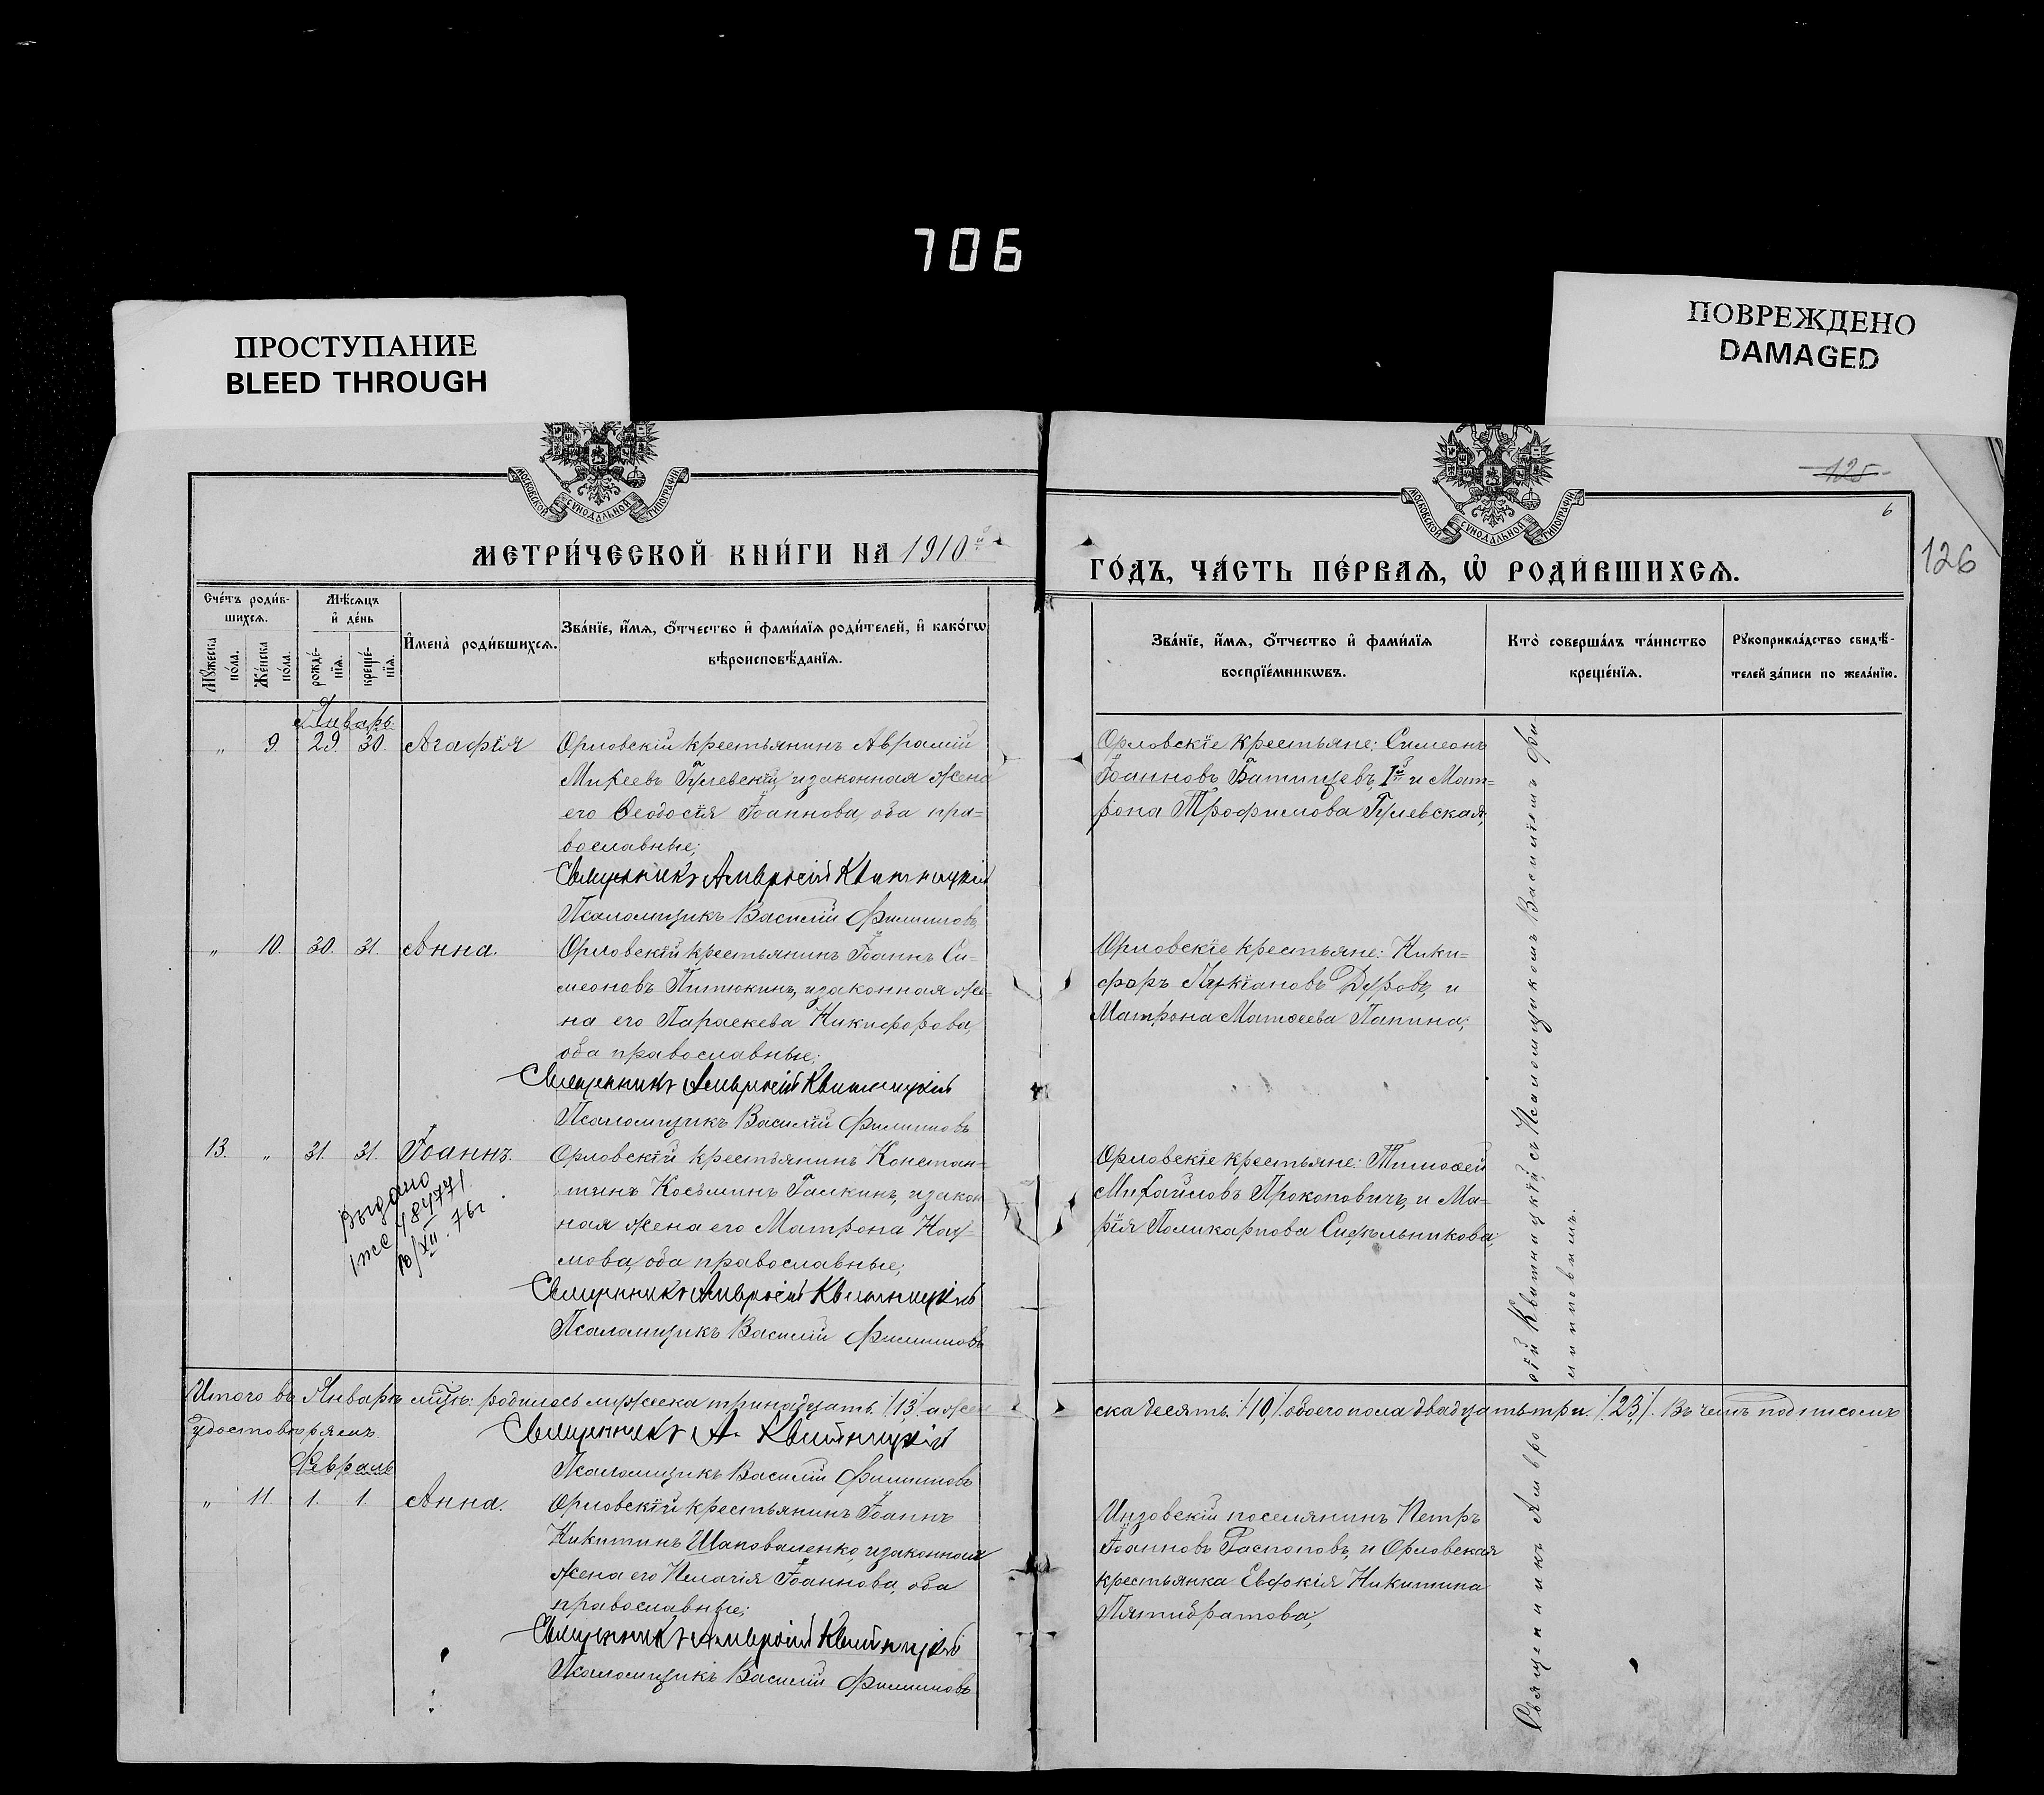 706
ПРОСТУПАНИЕ
BLEED THROUGH
ПОВРЕЖДЕНО
DAMAGED
МОСКОВСКОЙ СУНОДАЛЬНОЙ ТИПОГРАФІИ
МОСКОВСКОЙ СУНОДАЛЬНОЙ ТИПОГРАФІИ
125
6
126
МЕТРИ́ЧЕСКОЙ КНИ́ГИ НА 1910й
ГО́ДЪ, ЧА́СТЬ ПЕ́РВАѦ, Ѽ РОДИ́ВШИХСѦ.
Сче́тъ роди́в-
шихсѧ.
Мѣ́сѧцъ
и҆ де́нь
Мꙋ́жеска
по́ла.
Же́нска
по́ла.
рожде́-
нїѧ.
креще́-
нїѧ.
И҆мена̀ роди́вшихсѧ.
Зва́нїе, и҆́мѧ, ѻ҆́тчество и҆ фами́лїѧ роди́телей, и҆ како́гѡ
вѣроисповѣ́данїѧ.
Зва́нїе, и҆́мѧ, ѻ҆́тчество и҆ фами́лїѧ
воспрїе́мникѡвъ.
Кто̀ соверша́лъ та́инство
креще́нїѧ.
Рꙋкоприкла́дство свидѣ́-
телей за́писи по жела́нїю.
Январь.
„ 9. 29. 30. Агафія
Орловскій крестьянинъ Аврамій
Михеевъ Гулевскій, и законная жена
его Ѳеодосія Іоаннова, оба пра=
вославные;
Священникъ Амвросій Квитницкій
Псаломщикъ Василій Филипповъ
Орловскіе крестьяне: Симеонъ
Іоанновъ Батищевъ, Iй и Мат=
рона Трофимова Гулевская;
„ 10. 30. 31. Анна.
Орловскій крестьянинъ Іоаннъ Си=
меоновъ Питюкинъ, и законная же=
на его Параскева Никифорова,
оба православные;
Священникъ Амвросій Квитницкій
Псаломщикъ Василій Филипповъ
Орловскіе крестьяне: Ники=
форъ Лукіановъ Дуровъ, и
Матрона Матѳеева Папина;
13. „ 31. 31. Іоаннъ.
Орловскій крестьянинъ Констан=
тинъ Косьминъ Галкинъ, и закон
ная жена его Матрона Нау=
мова, оба православные;
Священникъ Амвросій Квитницкій
Псаломщикъ Василій Филипповъ
Выдано
484771
10/XII.76г
Орловскіе крестьяне: Тимоѳей
Михайловъ Прокоповичъ, и Ма=
рія Поликарпова Сидѣльникова;
Итого въ Январѣ мцѣ: родилось мужеска тринадцать /13/ а жен
ска десять /10/ обоего пола двадцать три. /23/. Въ чемъ подписомъ
удостовѣряемъ.
Священникъ А. Квитницкій
Псаломщикъ Василій Филипповъ
Февраль
„ 11. 1. 1. Анна.
Орловскій крестьянинъ Іоаннъ
Никитинъ Шаповаленко, и законная
жена его Пелагія Іоаннова, оба
православные;
Священникъ Амвросій Квитницкій
Псаломщикъ Василій Филипповъ
Инзовскій поселянинъ Петръ
Іоанновъ Распоповъ, и Орловская
крестьянка Евдокія Никитина
Пятибратова;
Священникъ Амвросій Квитницкій съ Псаломщикомъ Василіемъ Фи=
липповымъ.